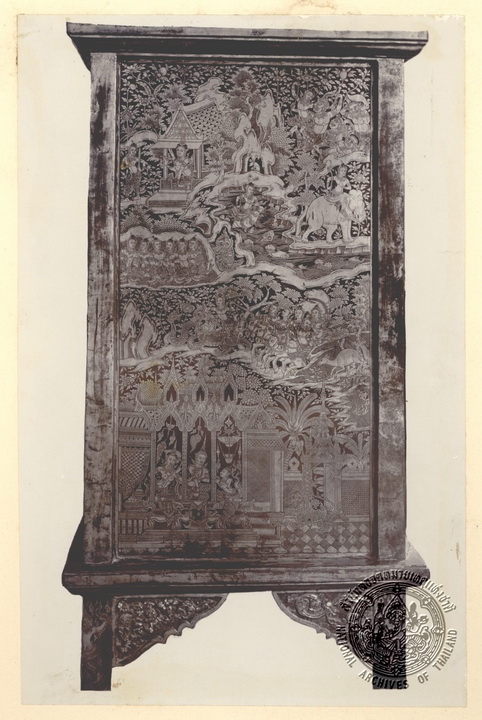 สำนักหอจดหมายเหตุแห่งชาติ
NATIONAL ARCHIVES OF THAILAND